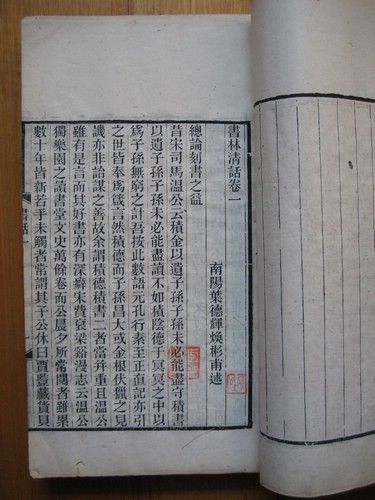 書林清話卷一
南陽葉德輝煥彬甫述
總論刻書之益
昔宋司馬溫公云積金以遺子孫子孫未必能盡守積書
以遺子孫子孫未必能盡讀不如積陰德于冥冥之中以
爲子孫無窮之計吾按此數語元孔行素至正直記亦引
之世皆奉爲箴言然積德而子孫昌大或金根伏獵之見
譏亦非詒謀之善故余謂積德積書二者當并重且溫公
雖有是言而其好書亦有深癖宋費袞梁谿漫志云溫公
獨樂園之讀書堂文史萬餘卷而公晨夕所常閱者雖累
數十年皆新若手未觸者常謂其子公休曰賈豎藏貨貝
書話一